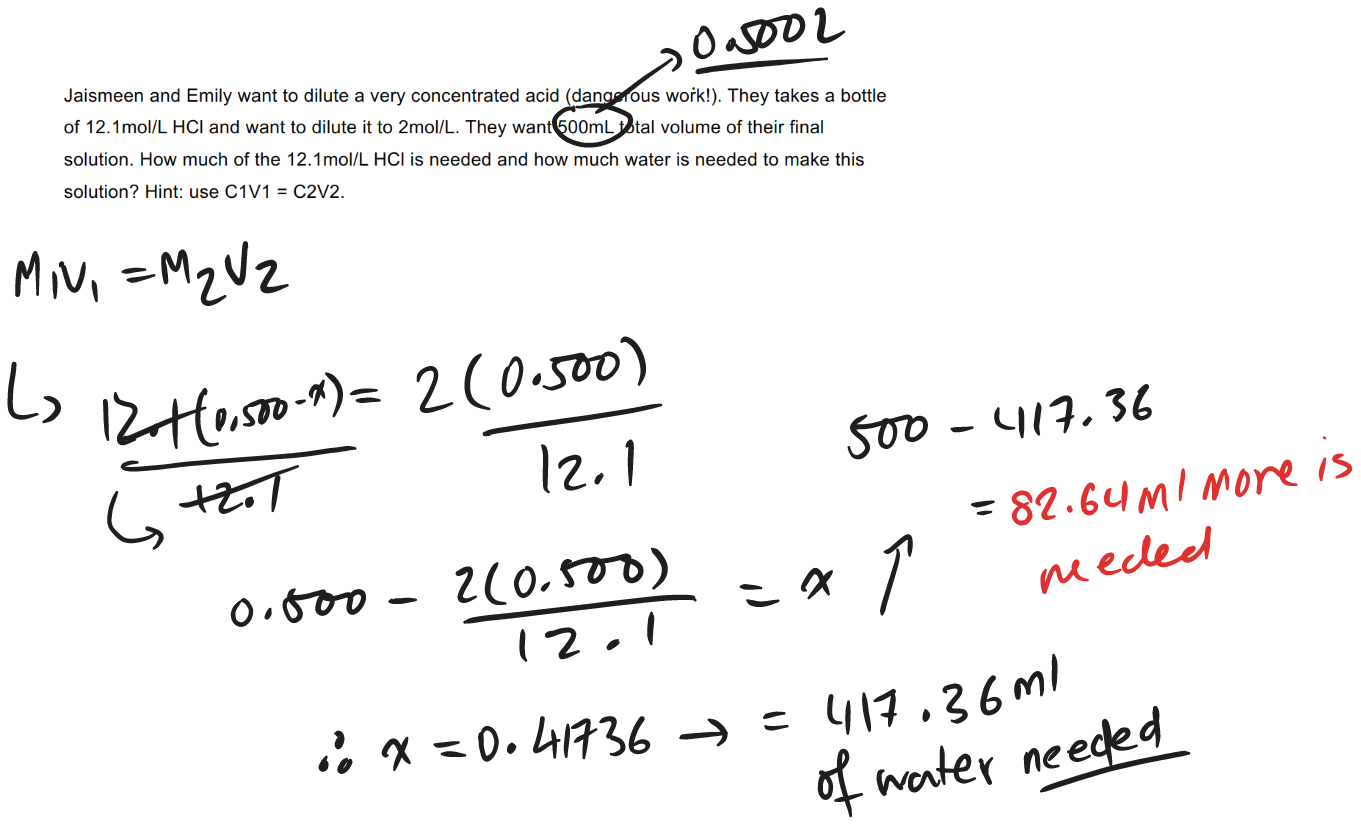 0.500L
Jaismeen and Emily want to dilute a very concentrated acid (dangerous work!). They takes a bottle
of 12.1mol/L HCl and want to dilute it to 2mol/L. They want 500mL total volume of their final
solution. How much of the 12.1mol/L HCl is needed and how much water is needed to make this
solution? Hint: use C1V1 = C2V2.
M1V1 = M2V2
12.1(0.500-x) = 2(0.500)
12.1 12.1
500 - 417.36
= 82.64ml more is
needed
0.500 - 2(0.500) = x
12.1
∴ x = 0.41736 → = 417.36ml
of water needed